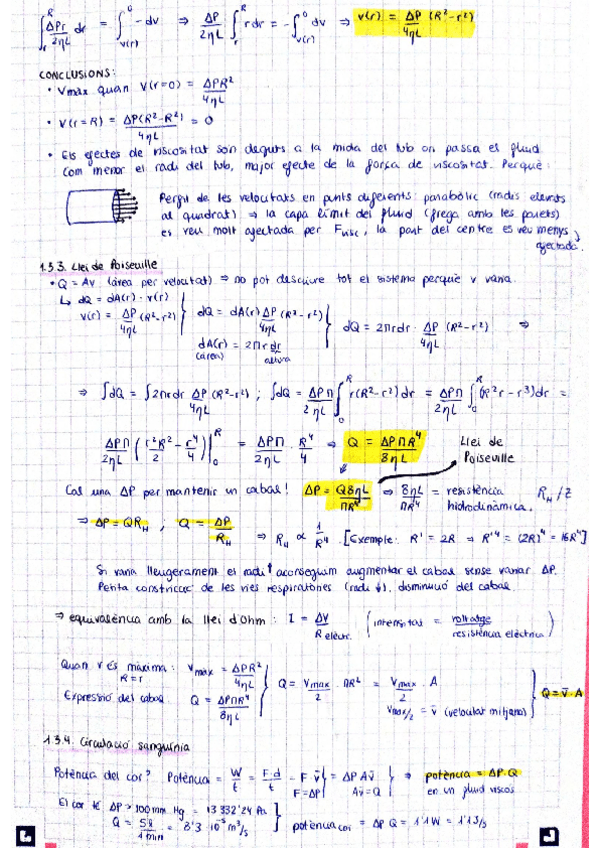 ∫_r^R ΔPr/2ηL dr = ∫_{v(r)}^0 -dv ⇒ ΔP/2ηL ∫_r^R r dr = -∫_{v(r)}^0 dv ⇒ v(r) = ΔP/4ηL (R²-r²)
CONCLUSIONS:
• Vmàx quan V(r=0) = ΔPR²/4ηL
• V(r=R) = ΔP(R²-R²)/4ηL = 0
• Els efectes de viscositat són deguts a la mida del tub on passa el fluid.
Com menor el radi del tub, major efecte de la força de viscositat. Perquè:
Perfil de les velocitats en punts diferents: parabòlic (radis elevats
al quadrat) ⇒ la capa límit del fluid (frega amb les parets)
es veu molt afectada per Fvisc, la part del centre es veu menys
afectada.
1.3.3. Llei de Poiseuille
• Q = Av (àrea per velocitat) ⇒ no pot descriure tot el sistema perquè v varia.
↳ dQ = dA(r) · v(r)
v(r) = ΔP/4ηL (R²-r²) } dQ = dA(r) ΔP/4ηL (R²-r²) } dQ = 2πrdr · ΔP/4ηL (R²-r²) ⇒
dA(r) = 2πr dr
(àrea) altura
⇒ ∫dQ = ∫2πrdr ΔP/4ηL (R²-r²) ; ∫dQ = ΔPπ/2ηL ∫_0^R r(R²-r²)dr = ΔPπ/2ηL ∫_0^R (R²r-r³)dr =
ΔPπ/2ηL (r²R²/2 - r⁴/4)|_0^R = ΔPπ/2ηL · R⁴/4 ⇒ Q = ΔPπR⁴/8ηL
Llei de
Poiseuille
Cal una ΔP per mantenir un cabal! ΔP = Q8ηL/πR⁴ ⇒ 8ηL/πR⁴ = resistència hidrodinàmica. R_H/Z
⇒ ΔP = QR_H ; Q = ΔP/R_H ⇒ R_H ∝ 1/R⁴ . [Exemple: R' = 2R ⇒ R'⁴ = (2R)⁴ = 16R⁴]
Si varia lleugerament el radi↑ aconseguim augmentar el cabal sense variar ΔP.
Petita constricció de les vies respiratòries (radi ↓), disminució del cabal.
⇒ equivalència amb la llei d'Ohm: I = ΔV/R elèctr. (intensitat = voltatge/resistència elèctrica)
Quan v és màxima: Vmàx = ΔPR²/4ηL
R=r
Expressió del cabal Q = ΔPπR⁴/8ηL } Q = Vmax/2 · πR² = Vmax/2 · A
Vmax/2 = v̄ (velocitat mitjana) } Q = v̄ · A
1.3.4. Circulació sanguínia
Potència del cor? Potència = W/t = F·d/t = F · v̄ | = ΔP A v̄ | ⇒ potència = ΔP·Q
F=ΔP Av̄=Q en un fluid viscós
El cor té ΔP > 100mm Hg = 13 332'24 Pa
Q = 5l/1min = 8'3 · 10⁻⁵ m³/s } potència cor = ΔP Q = 1'1W = 1'1J/s